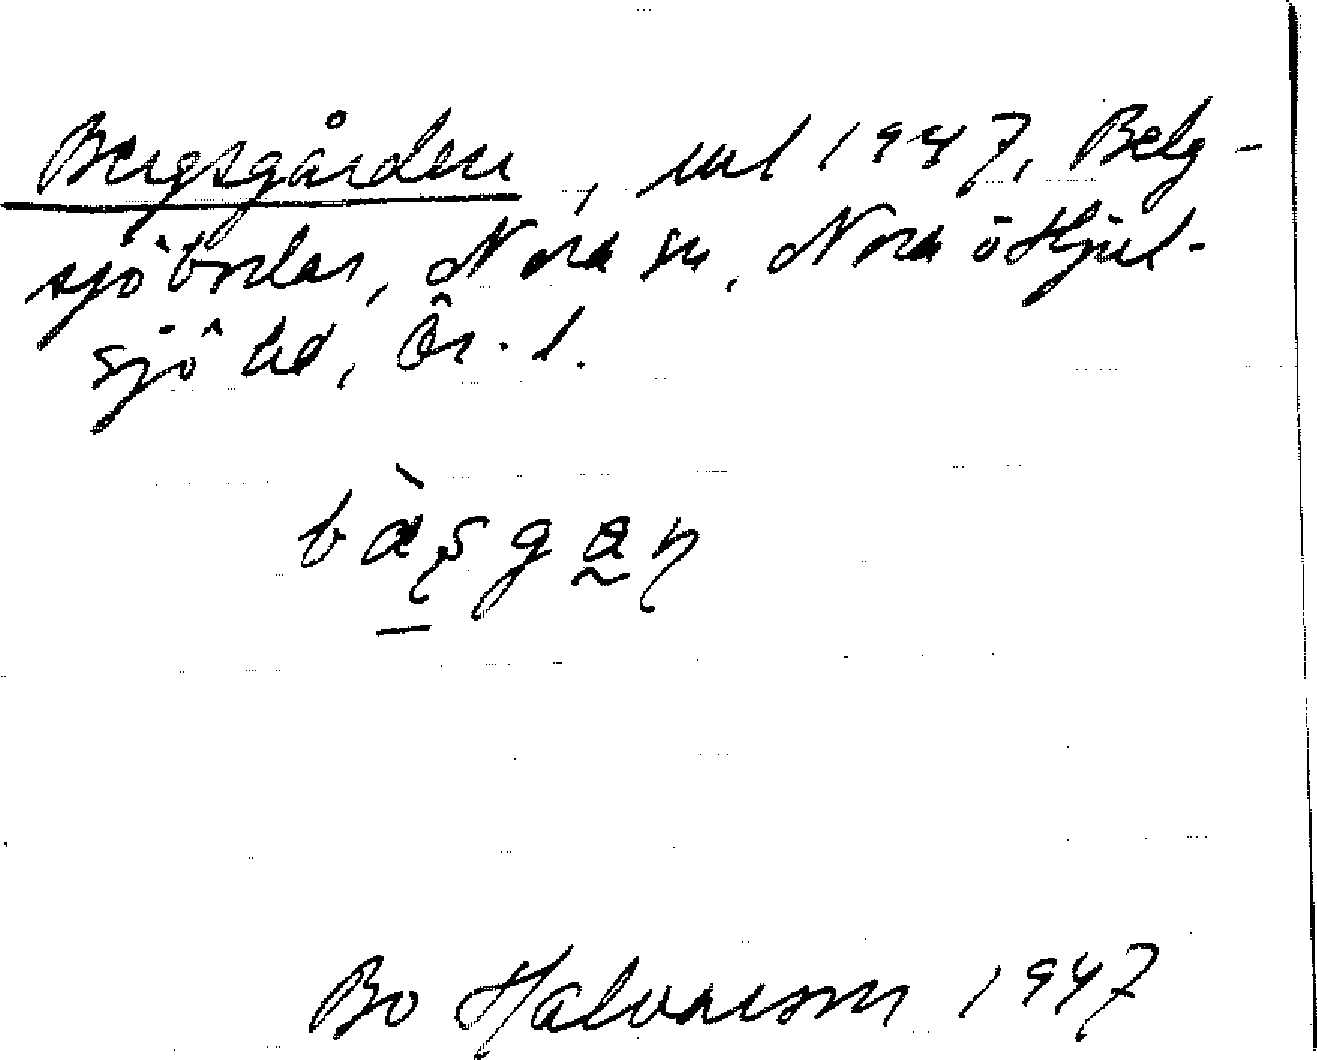 Bergsgården, uul 1947, Belg-
sjöbodar, Nora sn, Nora o Hjul-
sjö hd, Ör. l.
Bo Halvarson 1947